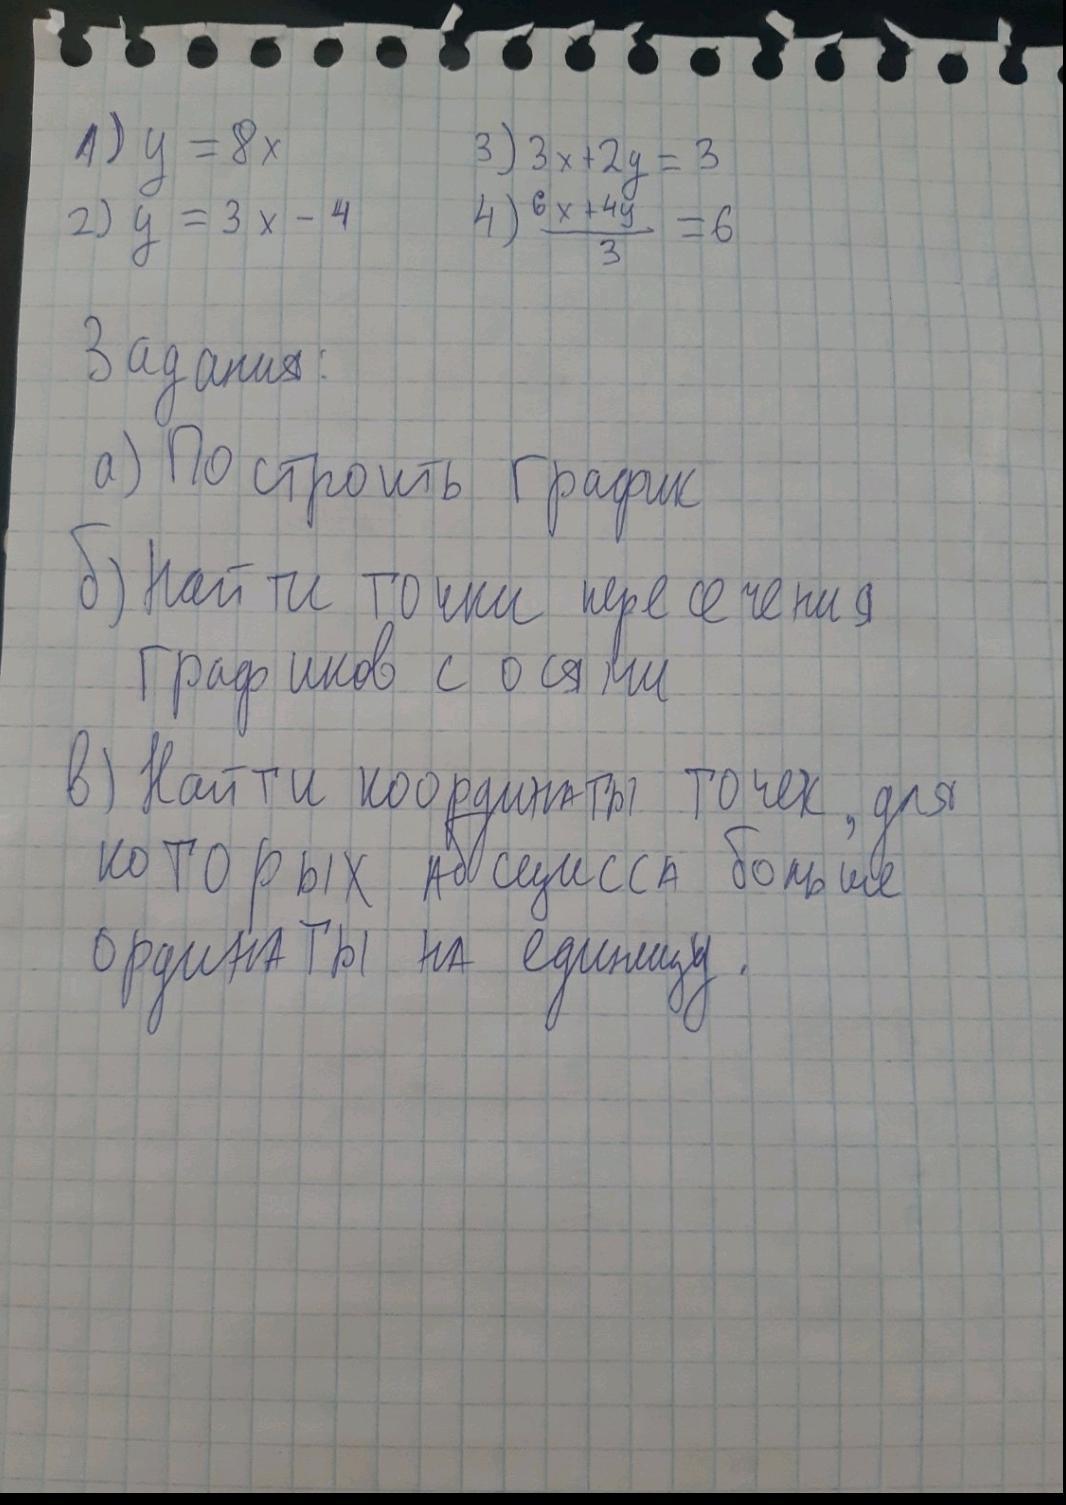 1) y = 8x
2) y = 3x - 4
3) 3x + 2y = 3
4) (6x + 4y)/3 = 6
Задания:
а) Построить график
б) Найти точки пересечения
графиков с осями
в) Найти координаты точек, для
которых абсцисса больше
ординаты на единицу.